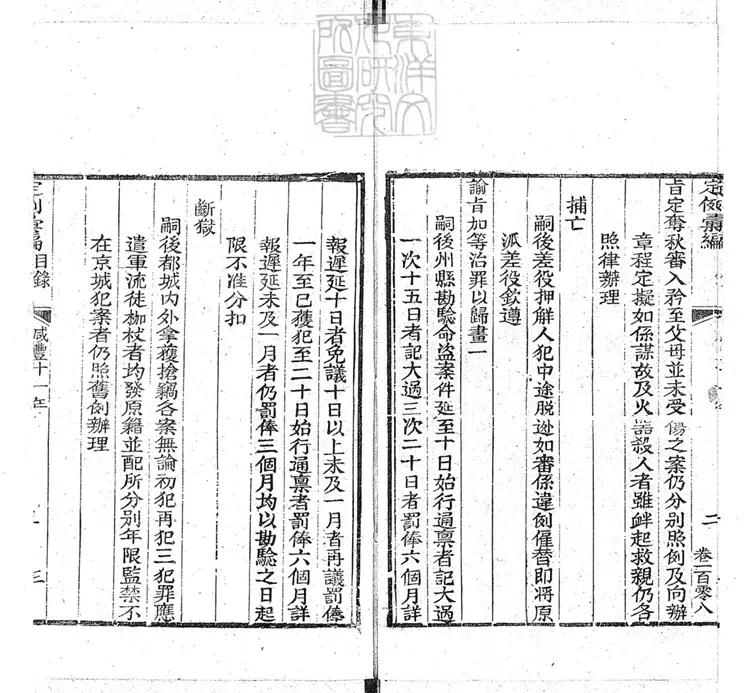 東洋文
化研究
所圖書
定例彙編
二
卷一百零八
旨定奪秋審入矜至父母並未受傷之案仍分別照例及向辦
章程定擬如係謀故及火器殺人者雖衅起救親仍各
照律辦理
捕亡
嗣後差役押解人犯中途脫逃如審係違例僱替即將原
派差役欽遵
諭旨加等治罪以歸畫一
嗣後州縣勘驗命盜案件延至十日始行通稟者記大過
一次十五日者記大過三次二十日者罰俸六個月詳
報遲延十日者免議十日以上未及一月者再議罰俸
一年至已獲犯至二十日始行通稟者罰俸六個月詳
報遲延未及一月者仍罰俸三個月均以勘驗之日起
限不准分扣
斷獄
嗣後都城內外拿獲搶竊各案無論初犯再犯三犯罪應
遣軍流徒枷杖者均發原籍並配所分別年限監禁不
在京城犯案者仍照舊例辦理
定例彙編目錄
咸豐十一年
三